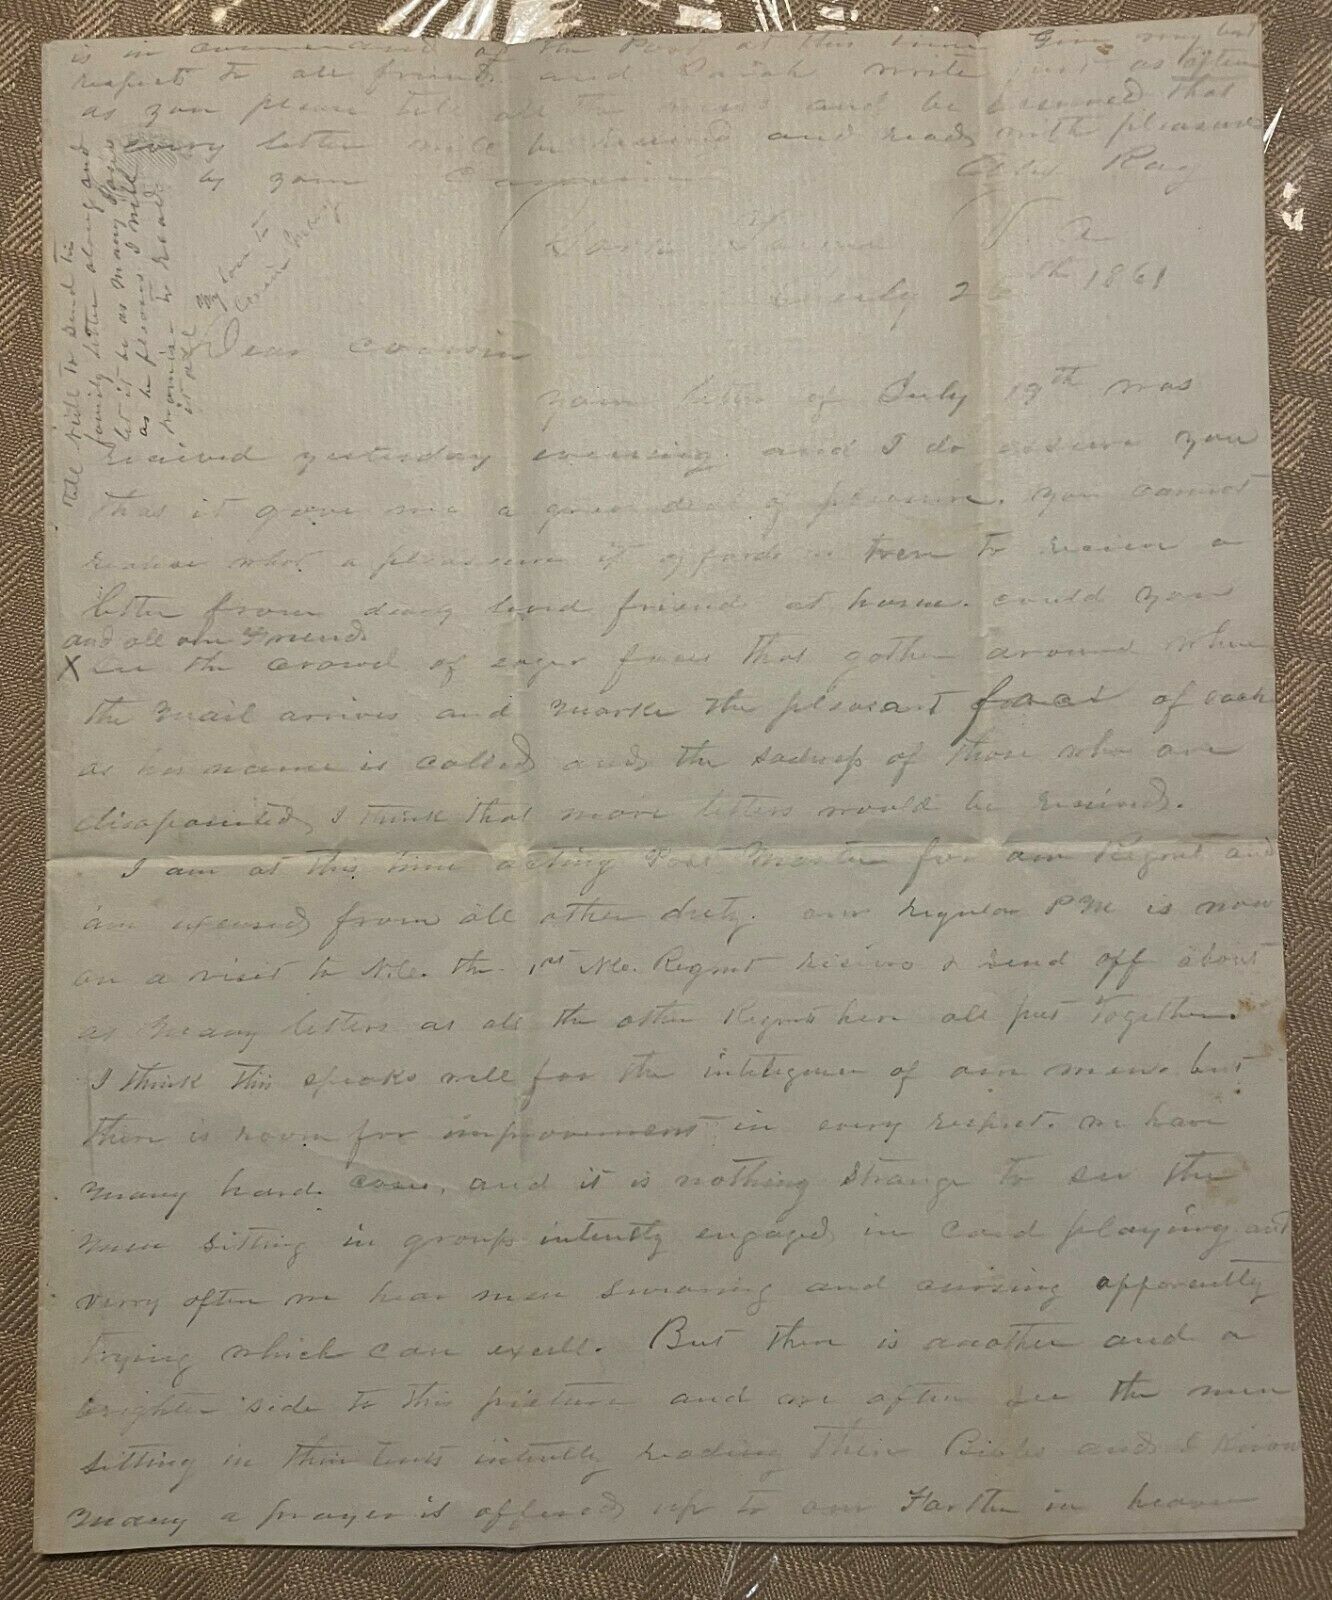 is in command of the Post at this time Give my best
respect to all friends and Sarah write just as often
as you please tell all the news and be assured that
every letter will be received and read with pleasure
by your Cousin
Ray
V A
July 2 th 1861
Tell to send his
family letter along and
let it be as many pages
as he pleases I will
promise to read
it all
Dear Cousin
your letter of July 19th was
received yesterday evening and I do assure you
that it gave me a great deal of pleasure. you cannot
what a pleasure it affords to receive a
letter from dearly loved friends at home. could you
and all our Friends
X in the crowd of eager faces that gather around when
the mail arrives and marke the pleasant faces of each
as his name is called and the sadness of those who are
disapointed I think that more letters would be received.
I am at this time acting Post Master for our Regmt and
am excused from all other duty. our regular PM is now
on a visit to N.C. the 1st N.C. Regmt & send off about
as many letters as all the other Regmts here all put together.
I think this speaks well for the inteligence of our men. but
there is room for improvement in every respect. we have
many hard cases, and it is nothing strange to see the
men sitting in groups intently engaged in card playing and
very often we hear men swearing and cursing apparently
trying which can excell. But there is another and a
brighter side to this picture and we often see the men
sitting in their tents intently reading their Bibles and I know
many a prayer is offered up to our Farther in heaven